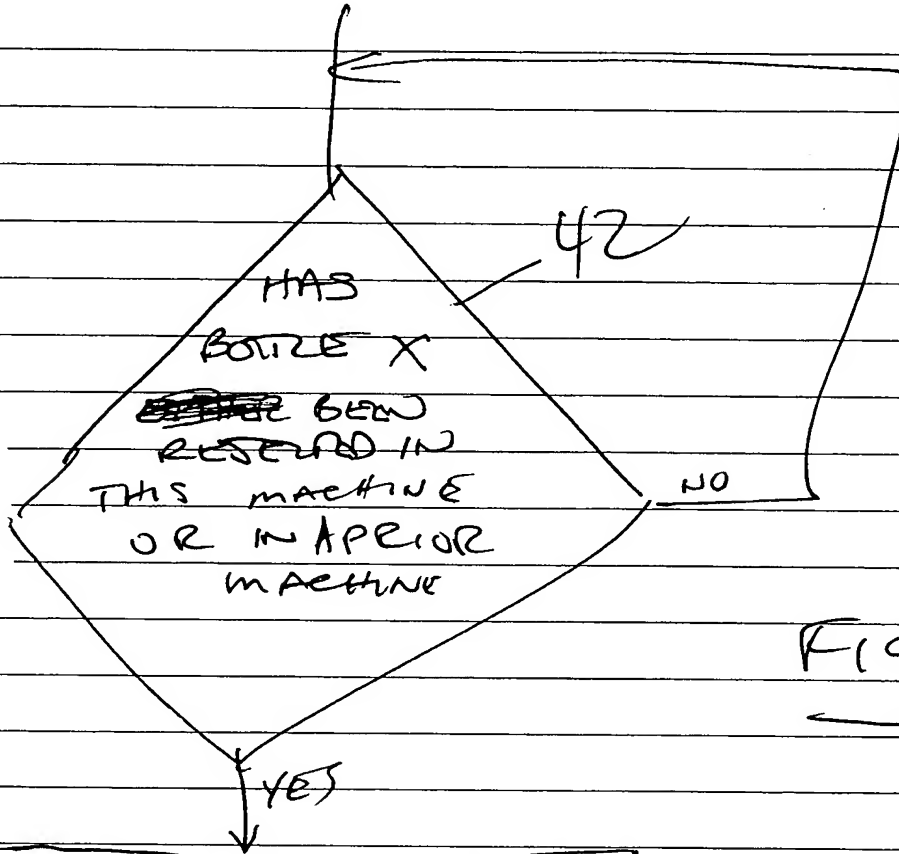 42
HAS
BOTTLE X
BEEN
REJECTED IN
THIS MACHINE
OR IN A PRIOR
MACHINE
NO
YES